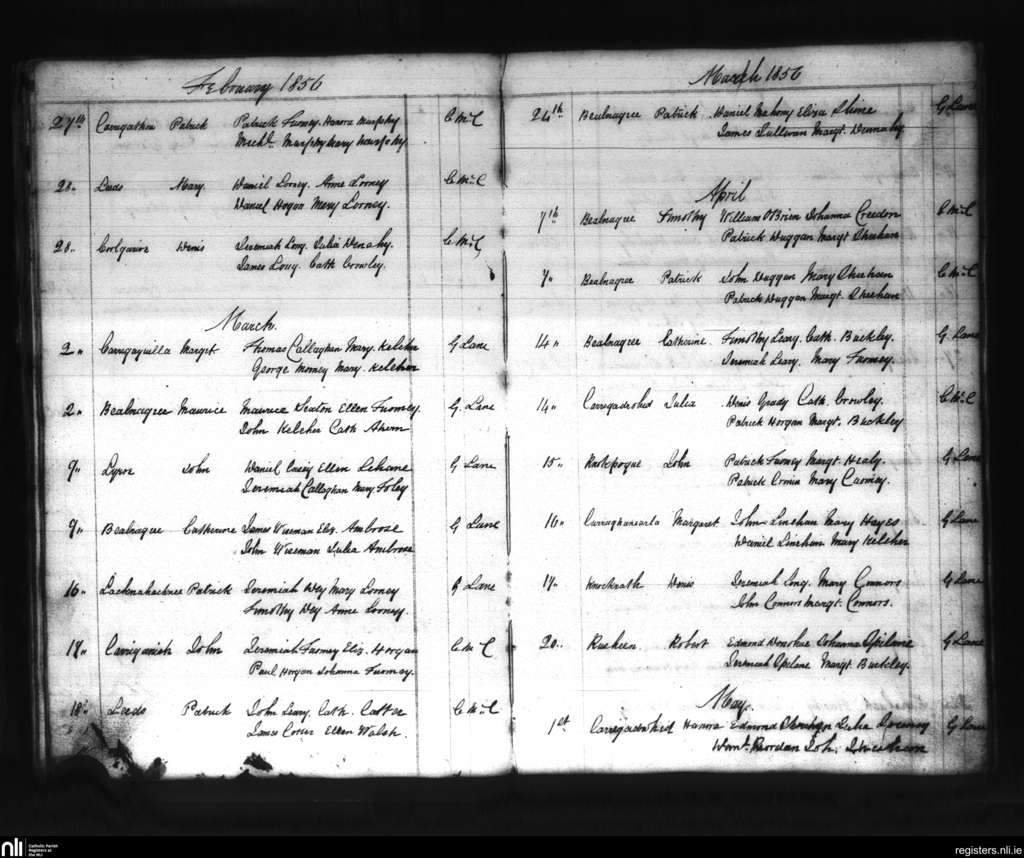 February 1856
27th Carrigathou Patrick Patrick Twomey. Honora Murphy C McC
Michl. Murphy Mary Murphy
28 " Leeds Mary. Daniel Lorney. Anne Lorney C McC
Daniel Hogan Mary Lorney.
28 " Denis Jeremiah Long. Julia Denahy. C McC
James Long. Cath Crowley.
March.
2 " Carrigayulla Margt Thomas Callaghan Mary. Kelcher G Lane
George Morney Mary. Kelcher
2 " Bealnagree Maurice Maurice Seaton Ellen Twomey. G. Lane
John Kelcher Cath Ahern
9 " Lyroe John Daniel Casey Ellen Lehane G Lane
Jeremiah Callaghan Mary Foley
9 " Bealnagree Catherine James Wiseman Eliz. Ambrose G Lane
John Wiseman Julia Ambrose
16 " Patrick Jeremiah Dey Mary Lorney G Lane
Timothy Dey Anne Lorney.
17 " Carriganish John Jeremiah Twomey Eliz. Horgan C McC
Paul Horgan Johanna Twomey.
18 " Leeds Patrick John Leary. Cath. C McC
James Ellen Walsh.
March 1856
24th Bealnagree Patrick Daniel Mahony Eliza Shine G Lane
James Sullivan Margt. Dennahy
April
7th Bealnagree Timothy William O'Brien Johanna Creedon C McC
Patrick Duggan Margt Sheehan
7 " Bealnagree Patrick John Duggan Mary Sheehan C McC
Patrick Duggan Margt. Sheehan
14 " Bealnagree Catherine Timothy Leary. Cath. Buckley. G Lane
Jeremiah Leary. Mary Twomey.
14 " Carrigadrohid Julia Denis Grady Cath Crowley. C McC
Patrick Horgan Margt. Buckley
15 " Knockpogue John Patrick Twomey Margt. Healy. G Lane
Patrick Cronin Mary
16 " Carraghanearla Margaret John Linehan Mary Hayes G Lane
Daniel Linehan Mary Kelcher
17 " Knocknath Denis Jeremiah Long. Mary Connors G Lane
John Connors Margt. Connors.
20 " Rusheen Robert Edmond Donohue Johanna Spilane G Lane
Jeremiah Spilane Margt. Buckley.
May.
1st Carrigadrohid Honora Edmond Julia G Lane
Wm. Riordan Joh.
nli
Catholic Parish
Registers at
the NLI
registers.nli.ie